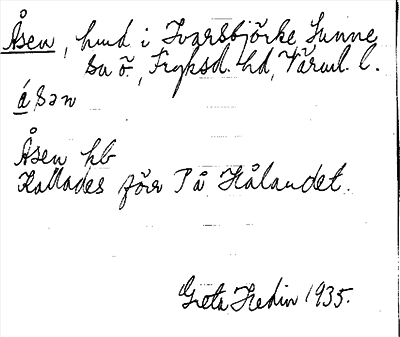 Åsen, hmd i Ivarsbjörke Sunne
sn ö., Fryksd. hd, Värml. l.
å̀sən
Åsen hb
Kallades förr På Hålandet.
Greta Hedin 1935.